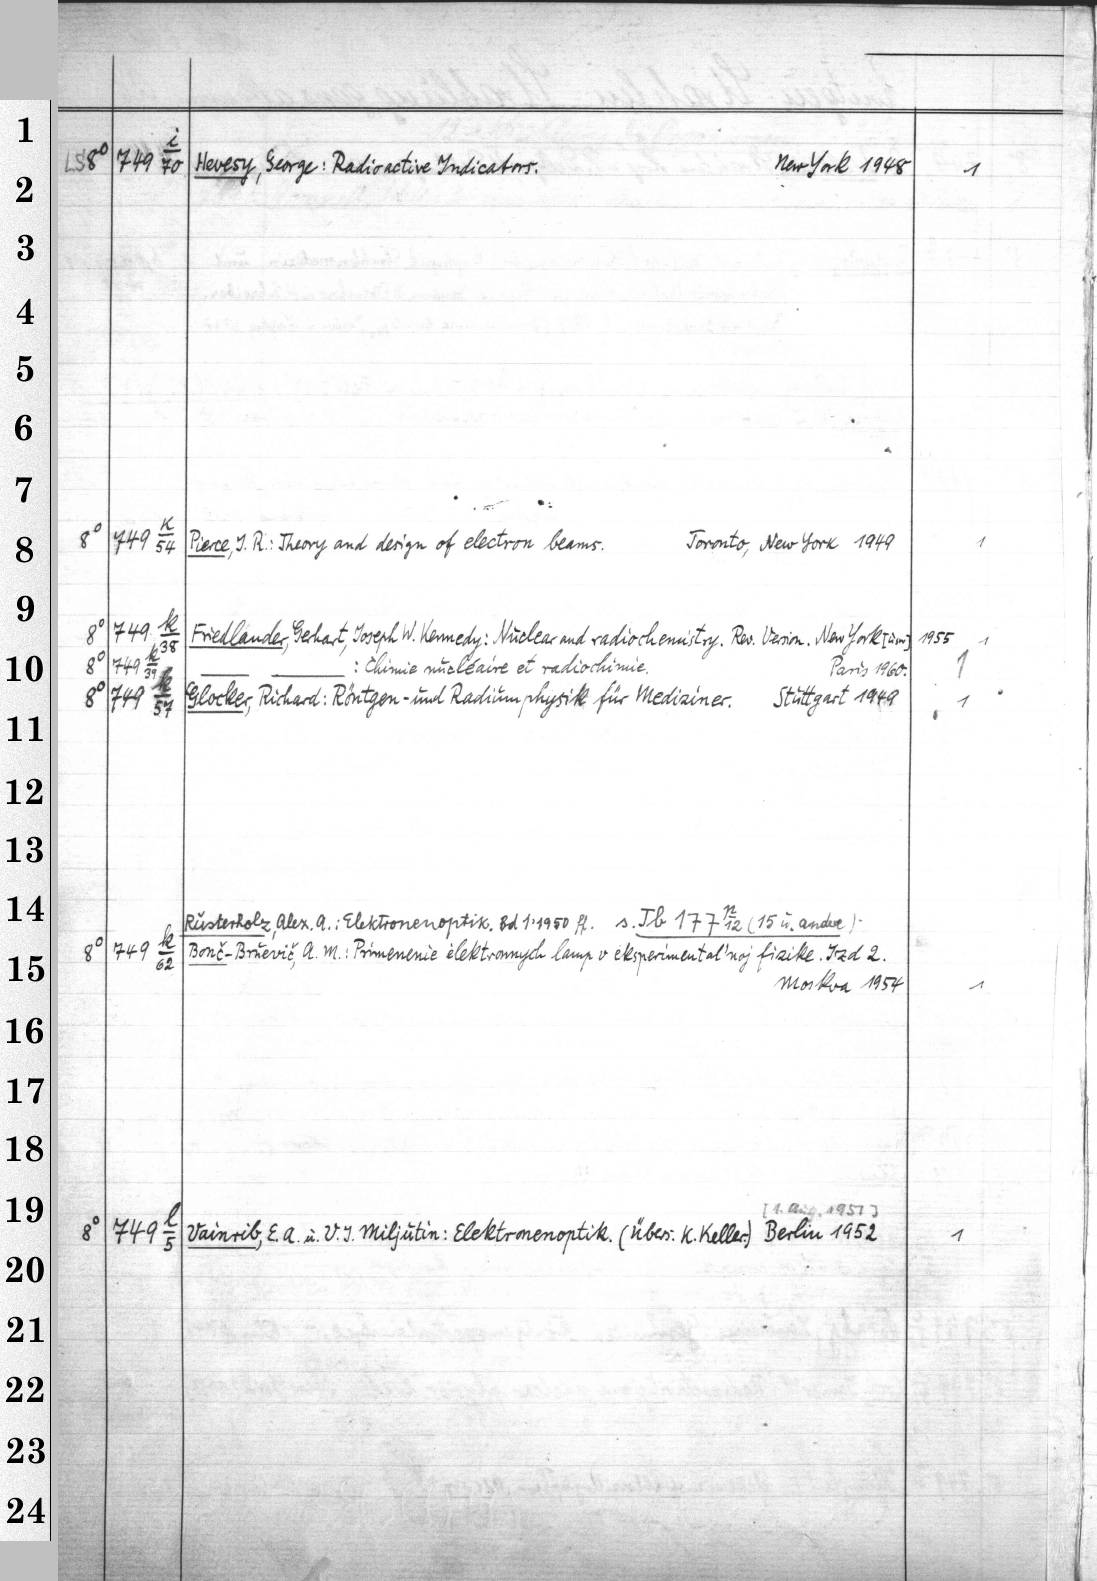 1
LS 8° 749 i/70 Hevesy, George: Radioactive Indicators. New York 1948 1
2
3
4
5
6
7
8° 749 k/54 Pierce, J. R.: Theory and design of electron beams. Toronto, New York 1949 1
8
9
8° 749 k/38 Friedlander, Gerhart, Joseph W. Kennedy: Nuclear and radiochemistry. Rev. Version. New York [usw] 1955 1
8° 749 k/39 ___ ___ : Chimie nucléaire et radiochimie. Paris 1960. 1
10
8° 749 k/57 Glocker, Richard: Röntgen- und Radiumphysik für Mediziner. Stuttgart 1949 1
11
12
13
14
Rusterholz, Alex. A.: Elektronenoptik. Bd 1. 1950 ff. s. Ib 177 n/12 (15 u. andre)
8° 749 k/62 Bonč-Bruevič, A. M.: Primenenie èlektronnych lamp v èksperimental'noj fizike. Izd 2.
15
Moskva 1954 1
16
17
18
19
[1. Aug. 1951]
8° 749 l/5 Vainrib, E. A. u. V. I. Miljutin: Elektronenoptik. (Übers. K. Keller) Berlin 1952 1
20
21
22
23
24